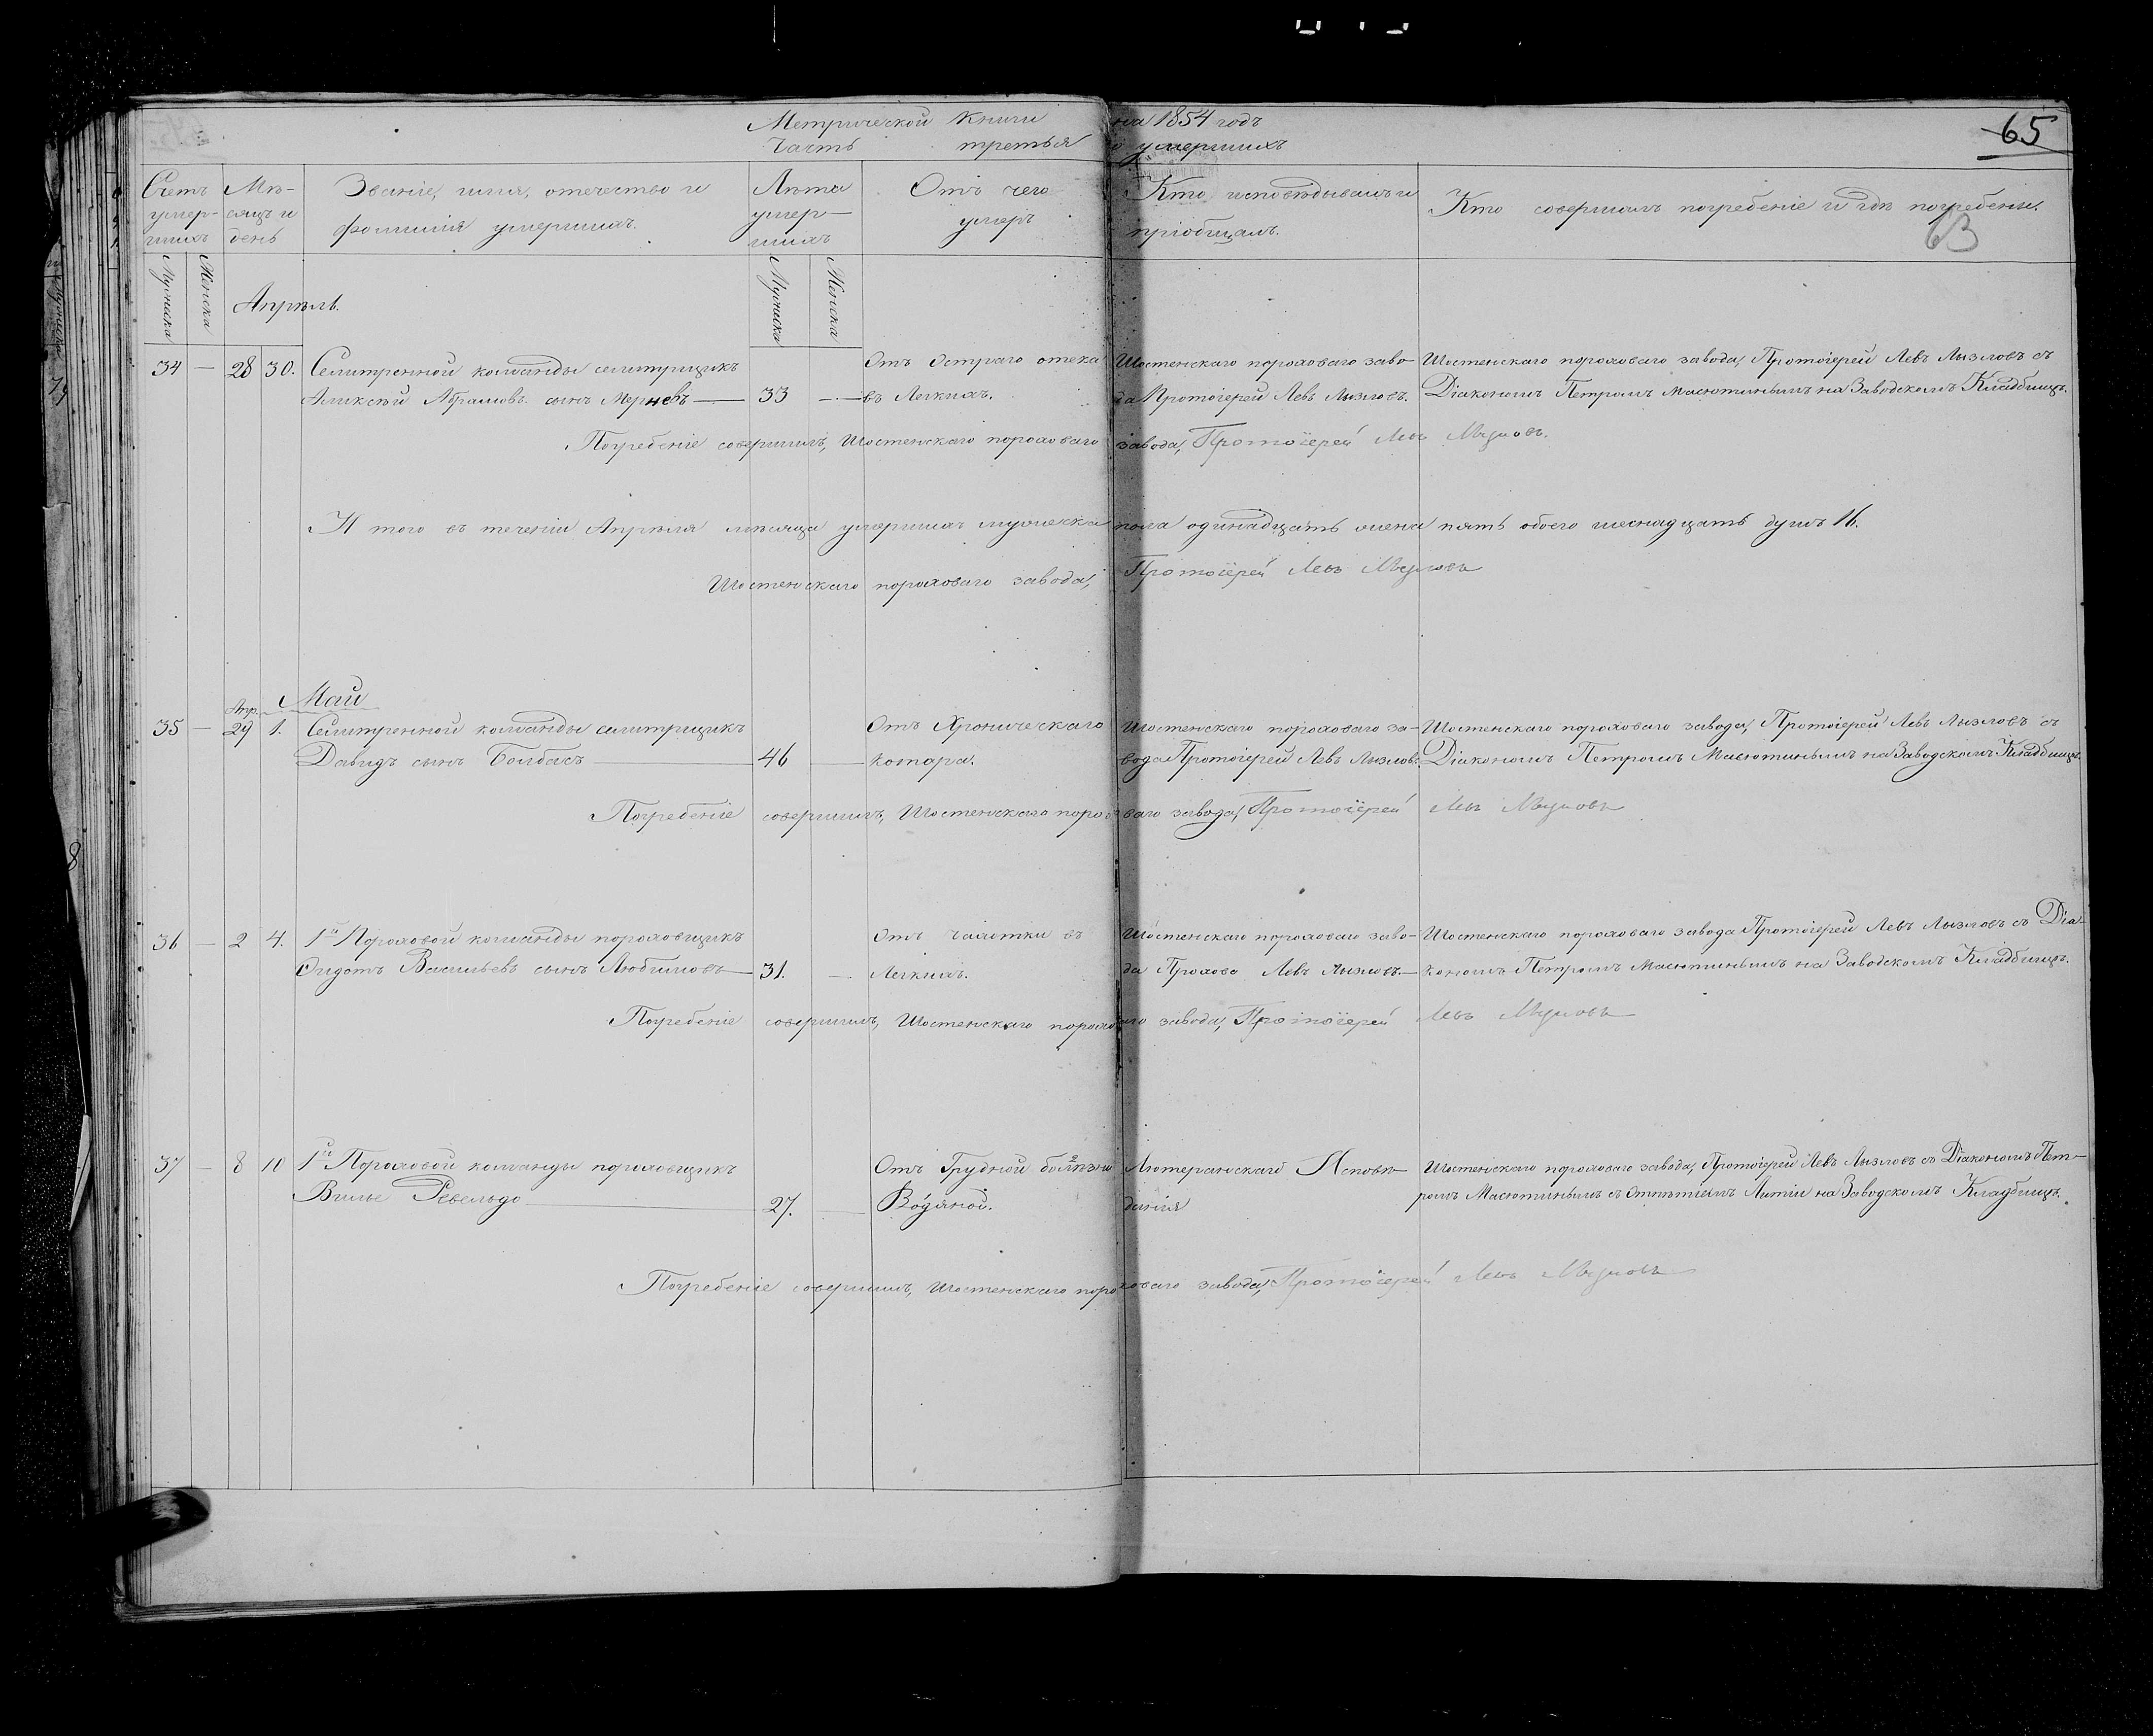 Метрической Книги на 1854 годъ
Часть третья о умершихъ
65
63
Счетъ умер-шихъ
Мѣ-сяцъ и день
Званіе, имя, отечество и фамилія умершихъ.
Лѣта умер-шихъ
Отъ чего умеръ
Кто исповѣдывалъ и пріобщалъ.
Кто совершалъ погребеніе и гдѣ погребены.
Мужеска Женска
Мужеска Женска
Апрѣль.
34 — 28 30. Селитренной команды селитрщикъ
Аликсѣй Абрамовъ сынъ Мерневъ — 33 —
Отъ Остраго отека
въ Легкихъ.
Шостенскаго пороховаго заво-
да Протоіерей Левъ Лызловъ.
Шостенскаго пороховаго завода, Протоіерей Левъ Лызловъ съ
Діакономъ Петромъ Масютинымъ на Заводскомъ Кладбищѣ.
Погребеніе совершилъ, Шостенскаго пороховаго завода, Протоіерей Левъ Лызловъ.
И того въ теченіи Апрѣля мѣсяца умершихъ мужеска пола одинадцать женска пять обоего шеснадцать душъ 16.
Шостенскаго пороховаго завода, Протоіерей Левъ Лызловъ
Май
Апр.
35 — 29 1. Селитренной команды селитрщикъ
Давидъ сынъ Болбасъ — 46 —
Отъ Хроническаго
Котара.
Шостенскаго пороховаго за-
вода Протоіерей Левъ Лызловъ.
Шостенскаго пороховаго завода, Протоіерей Левъ Лызловъ съ
Діакономъ Петромъ Масютинымъ на Заводскомъ Кладбищѣ.
Погребеніе совершилъ, Шостенскаго пороховаго завода, Протоіерей Левъ Лызловъ
36 — 2 4. 1й Пороховой команды пороховщикъ
Ѳидотъ Васильевъ сынъ Любимовъ — 31. —
Отъ Чахотки въ
Легкихъ.
Шостенскаго пороховаго заво-
да Левъ Лызловъ —
Шостенскаго пороховаго завода Протоіерей Левъ Лызловъ съ Діа-
кономъ Петромъ Масютинымъ на Заводскомъ Кладбищѣ.
Погребеніе совершилъ, Шостенскаго пороховаго завода, Протоіерей Левъ Лызловъ
37 — 8 10 1й Пороховой команды пороховщикъ
Вилье Ревельдо — 27. —
Отъ Грудной болѣзни
Водяной.
Лютеранскаго Исповѣ-
данія
Шостенскаго пороховаго завода, Протоіерей Левъ Лызловъ съ Діакономъ Пет-
ромъ Масютинымъ съ Отпѣтіемъ Литіи на Заводскомъ Кладбищѣ.
Погребеніе совершилъ, Шостенскаго пороховаго завода, Протоіерей Левъ Лызловъ